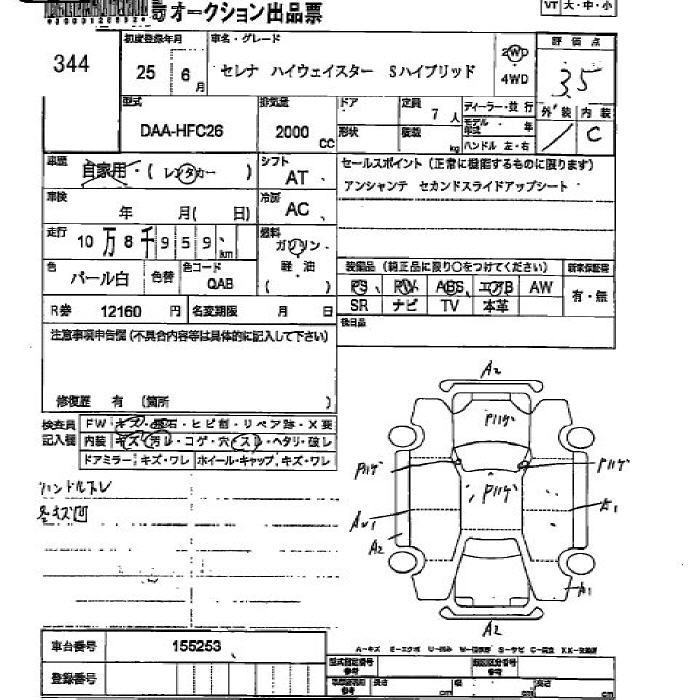 オークション出品票
VT 大・中・小
344
初度登録年月
25 6 月
車名・グレード
セレナ ハイウェイスター Sハイブリッド
2WD
4WD
評価点
3.5
外装 内装
C
型式
DAA-HFC26
排気量
2000 CC
ドア
形状
定員
7 人
積載
kg
ディーラー・並行
モデル年式 年
ハンドル 左・右
車歴
自家用・( レンタカー )
シフト
AT
セールスポイント (正常に機能するものに限ります)
アンシャンテ セカンドスライドアップシート
車検
年 月( 日)
冷房
AC
走行
10 万 8 千 9 5 9 km
燃料
ガソリン
軽・油
( )
色
パール白
色替
色コード
QAB
装備品 (純正品に限り○をつけてください)
新車保証書
PS PW ABS エアB AW
有・無
SR ナビ TV 本革
R券 12160 円
名変期限 月 日
後日品
注意事項申告欄(不具合内容等は具体的に記入して下さい)
修復歴 有 (箇所 )
検査員
記入欄
FW キズ・飛石・ヒビ割・リペア跡・X要
内装 キズ・汚レ・コゲ・穴・スレ・ヘタリ・破レ
ドアミラー キズ・ワレ ホイール・キャップ キズ・ワレ
ハンドルスレ
各キズ凹
A2
Pハゲ
Pハゲ
Pハゲ
Pハゲ
A1
A2
A1
A2
車台番号 155253
登録番号
型式指定番号
参考
類別区分番号
参考
長さ cm
幅 cm
高さ cm